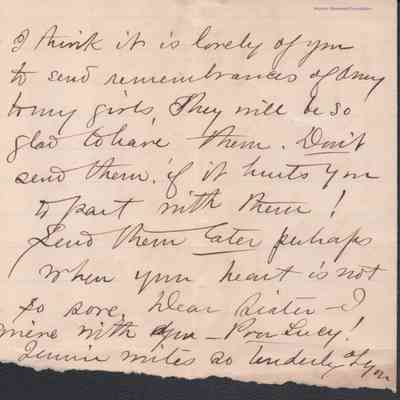 I think it is lovely of you
to send remembrances of Amy
to my girls, They will be so
glad to have them. Don't
send them, if it hurts you
to part with them!
Send them later perhaps
when your heart is not
so sore, Dear Sister - I
with you - Poor Lucy!
Jennie writes so tenderly of you